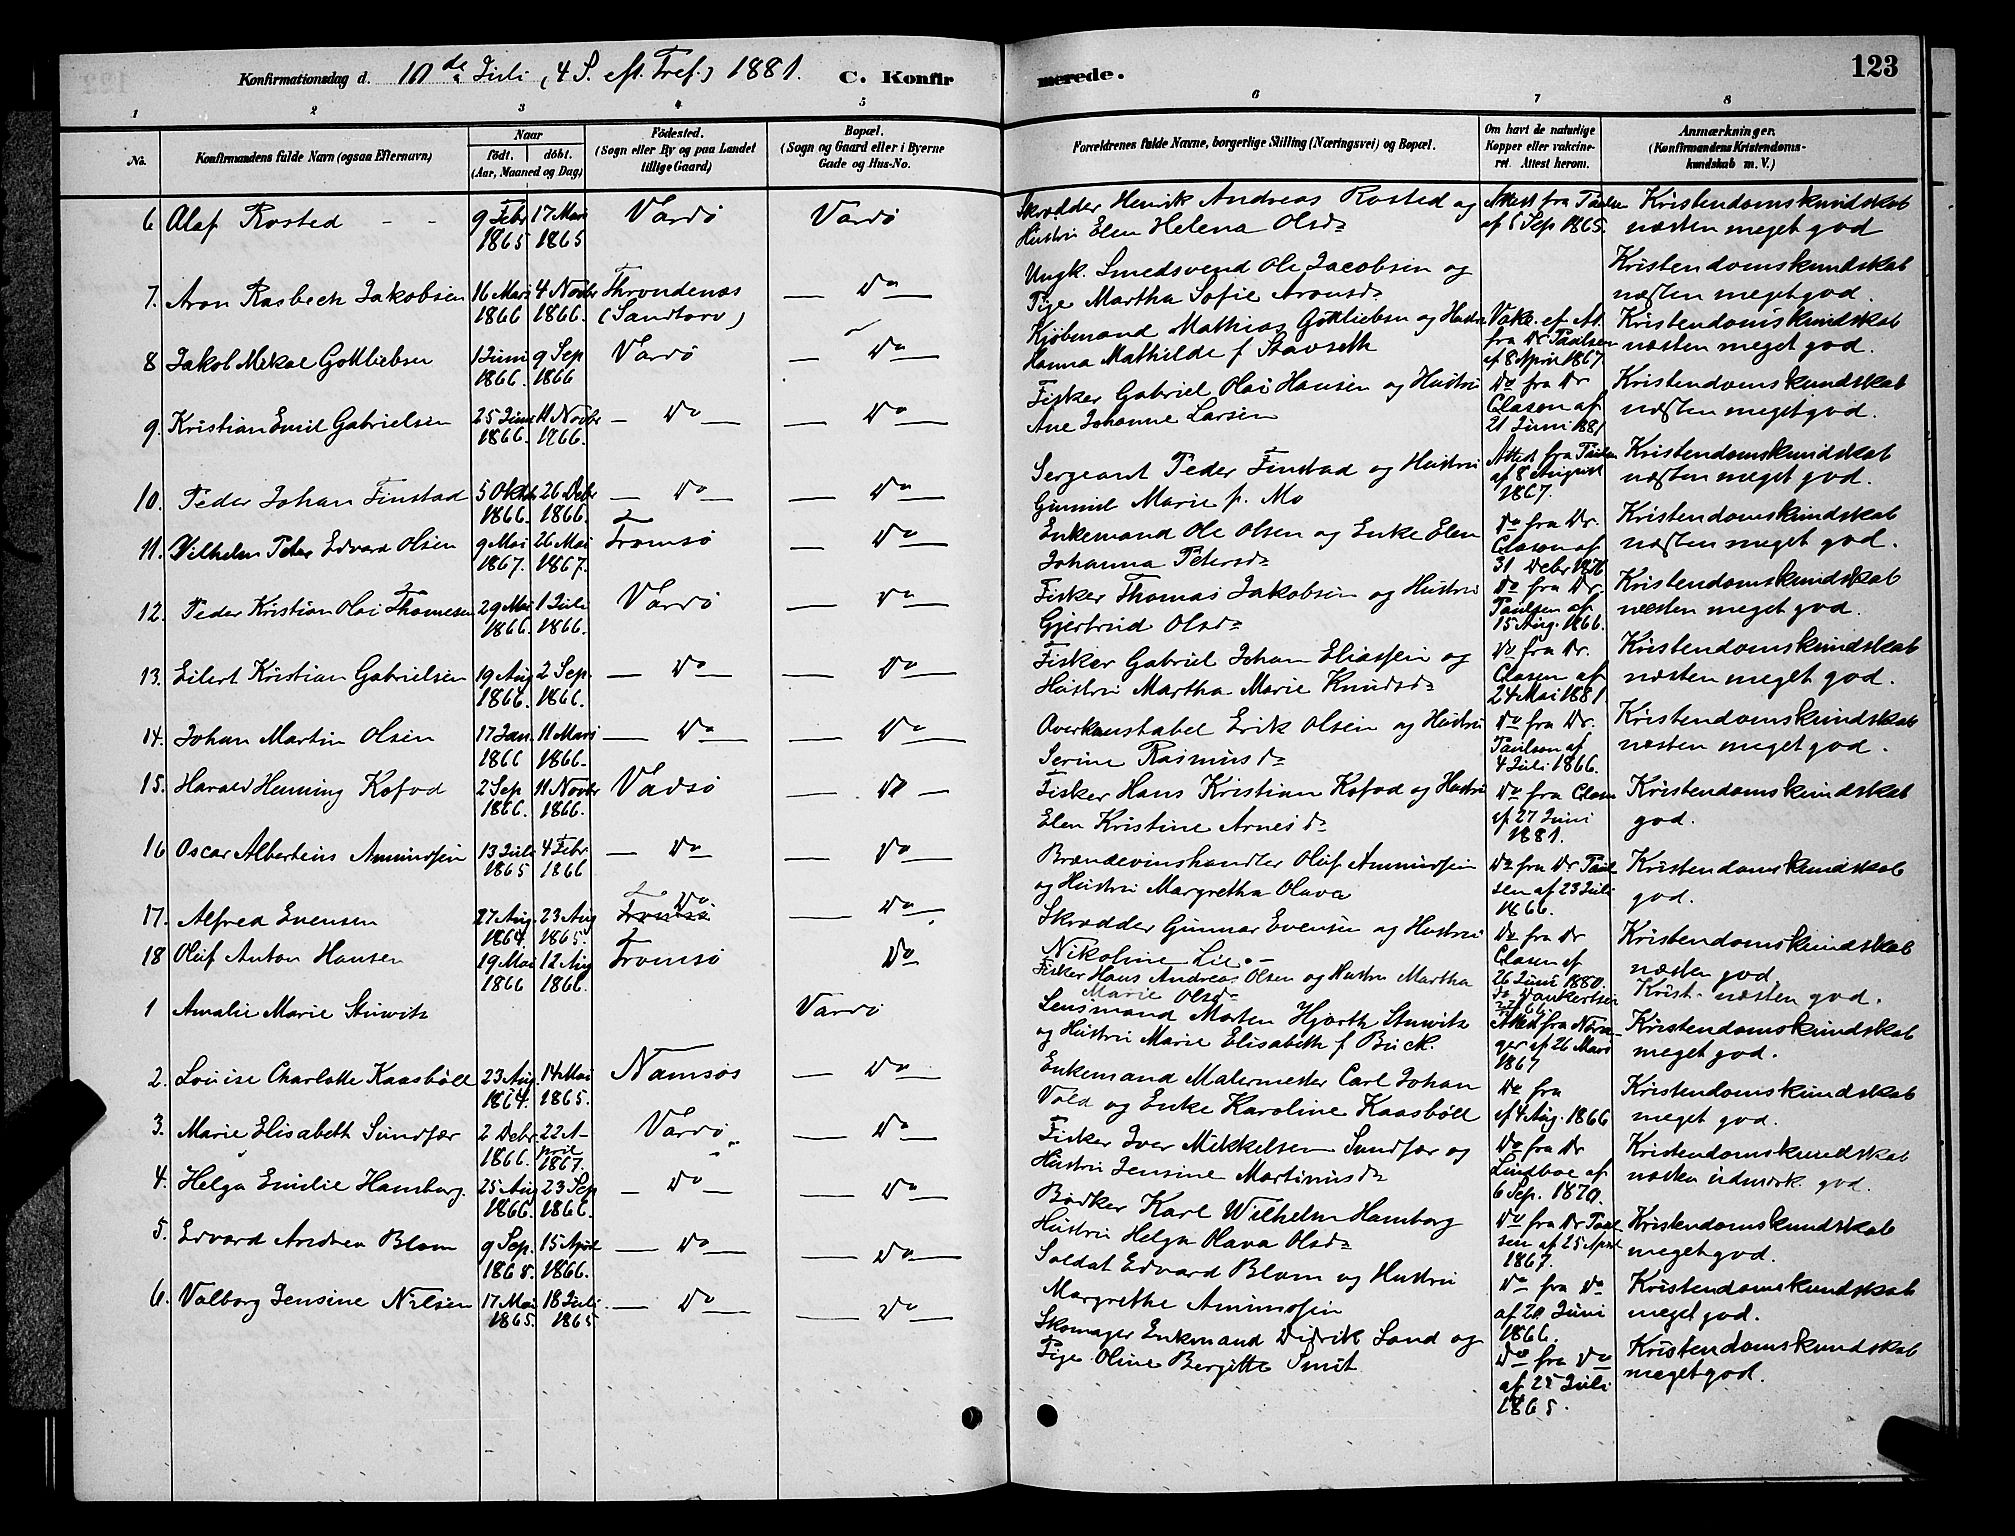 Konfirmationsdag d. 10de Juli (4 S. eft. Tref.) 1881. C. Konfirmerede. 123
1 2 3 4 5 6 7 8
No. Konfirmandens fulde Navn (ogsaa Efternavn) Naar født. døbt. (Aar, Maaned og Dag) Födested. (Sogn eller By og paa Landet tillige Gaard) Bopæl. (Sogn og Gaard eller i Byerne Gade og Hus-No. Forældrenes fulde Navne, borgerlige Stilling (Næringsvei) og Bopæl. Om havt de naturlige Kopper eller vakcineret. Attest herom. Anmærkninger. (Konfirmandens Kristendomskundskab m. V.)
6 Olaf Rosted - - 9 Febr 1865 17 Mars 1865 Vardö Vardö Skrædder Henrik Andreas Rosted og Hustru Elen Helena Olsdr Attest fra Paulsen af 6 Sep 1865. Kristendomskundskab næsten meget god
7. Aron Rasbech Jakobsen 16 Mars 1866 4 Novbr 1866. Throndenæs (Sandtorv) Do Ungk. Smedsvend Ole Jacobsen og Pige Martha Sofie Aronsdr Kristendomskundskab næsten meget god.
8 Jakob Mikal Gottliebsen 1 Juni 1866. 9 Sep 1866 Vardö Do Kjöbmand Mathias Gottliebsen og Hustru Hanna Mathilde f Stavseth Vakc. ef. At. fra Dr Paulsen af 8 April 1867. Kristendomskundskab næsten meget god.
9. Kristian Emil Gabrielsen 25 Juni 1866. 11 Novbr 1866. Do Do Fisker Gabriel Olai Hansen og Hustru Ane Johanne Larsen Do fra Dr Clasen af 21 Juni 1881 Kristendomskundskab næsten meget god.
10. Peder Johan Finstad 5 Oktbr 1866. 26 Debr 1866. Do Do Sergeant Peder Finstad og Hustru Gunnil Marie f. Mo Attest fra Paulsen af 8 August 1867. Kristendomskundskab næsten meget god.
11. Vilhelm Peter Edvard Olsen 9 Mai 1867. 26 Mai 1867. Tromsö Do Enkemand Ole Olsen og Enke Elen Johanna Petersdr Do fra Dr. Clasen af 31 Debr 1876 Kristendomskundskab næsten meget god.
12. Peder Kristian Olai Thomesen 29 Mai 1866. 1 Juli 1866. Vardö Do Fisker Thomas Jakobsen og Hustru Gjertrud Olsdr Do fra Dr. Paulsen af 15 Aug. 1866. Kristendomskundskab næsten meget god.
13. Eilert Kristian Gabrielsen 19 Aug 1866. 2 Sep. 1866. Do Do Fisker Gabriel Johan Eliassen og Hustru Martha Marie Knudsdr Do fra Dr. Clasen af 24 Mai 1881. Kristendomskundskab næsten meget god.
14. Johan Martin Olsen 17 Jan. 1866 11 Mars 1866. Do Do Overkonstabel Erik Olsen og Hustru Serine Rasmusdr Do fra Dr. Paulsen af 4 Juli 1866. Kristendomskundskab næsten meget god.
15. Harald Henning Kofod 2 Sep 1866. 11 Novbr 1866. Vadsö Do Fisker Hans Kristian Kofod og Hustru Elen Kristine Arnesdr Do fra Clasen af 27 Juni 1881. Kristendomskundskab god.
16 Oscar Albertius Amundsen 13 Juli 1865 4 Febr. 1866 Do Do Brændevinshandler Oluf Ammundsen og Hustru Margretha Olava Do fra Dr Paulsen af 23 Juli 1866. Kristendomskundskab god.
17. Alfred Evensen 27 Aug. 1864. 23 Aug 1865. Tromsö Do Do Skrædder Gunnar Evensen og Hustru Nikoline Lie. Do fra Dr Clasen af 26 Juni 1880. Kristendomskundskab næsten god.
18 Oluf Anton Hansen 19 Mai 1866 12 Aug 1866. Tromsö Do Fisker Hans Andreas Olsen og Hustru Martha Marie Olsdr Krist. næsten god.
1 Amalie Marie Stuwitz Vardö Lensmand Morten Hjorth Stuwitz og Hustru Marie Elisabeth f Buck. Attest fra af 26 Mars 1867 Kristendomskundskab meget god.
2. Louise Charlotte Kaasböll 23 Aug. 1864. 14 Mai 1865. Namsos Do Enkemand Malermester Carl Johan Vold og Enke Karoline Kaasböll Do fra af 4 Aug. 1866 Kristendomskundskab meget god.
3. Marie Elisabeth Sundfær 2 Debr 1866. 22 April 1867. Vardö Do Fisker Iver Mikkelsen Sundfær og Hustru Jensine Martinusdr Do fra Dr Lindboe af 6 Sep. 1870. Kristendomskundskab næsten udmærk. god.
4. Helga Emilie Hamborg. 25 Aug 1866. 23 Sep 1866. Do Do Bödker Karl Wilhelm Hamborg Hustru Helga Olava Olsdr Do fra Dr Paulsen af 25 April 1867. Kristendomskundskab meget god.
5. Edvard Andrea Blom 9 Sep. 1865. 15 April 1866. Do Do Soldat Edvard Blom og Hustru Margrethe Amundsen Do fra Do af 20 Juni 1866. Kristendomskundskab meget god.
6. Valborg Jensine Nilsen 17 Mai 1865. 18 Juli 1865 Do Do Skomager Enkemand Didrik Sand og Pige Oline Bergitte Smit Do fra Do af 25 Juli 1865. Kristendomskundskab meget god.